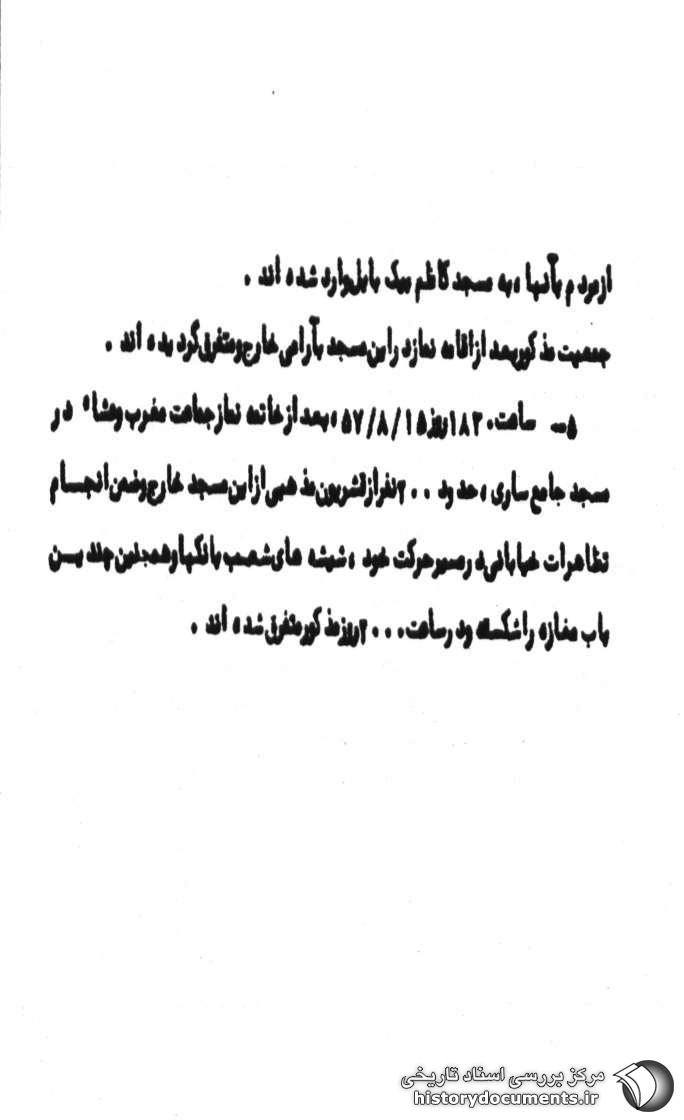 ازمردم بآنها ، به مسجد کاظم بیک بابل وارد شده اند .
جمعیت مذکور بعد از اقامه نماز در این مسجد بآرامی خارج و متفرق گردیده اند .
۵ـ ساعت ۱۸۳۰ روز ۵۷/۸/۱۵ ، بعد از خاتمه نماز جماعت مغرب و عشاء در
مسجد جامع ساری ، حدود ۲۰۰ نفر از قشریون مذهبی از این مسجد خارج و ضمن انجام
تظاهرات خیابانی در مسیر حرکت خود ، شیشه های شعب بانکها و همچنین چندیـن
باب مغازه را شکسته و در ساعت ۲۰۰۰ روز مذکور متفرق شده اند .
مرکز بررسی اسناد تاریخی
historydocuments.ir